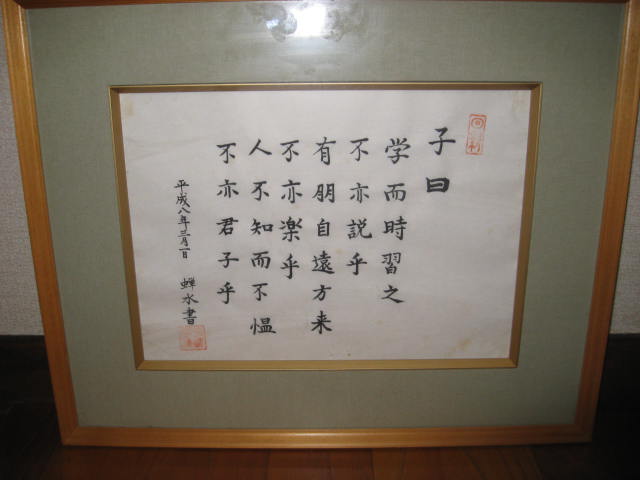 子曰
学而時習之
不亦説乎
有朋自遠方来
不亦楽乎
人不知而不愠
不亦君子乎
平成八年三月一日 蝉水書